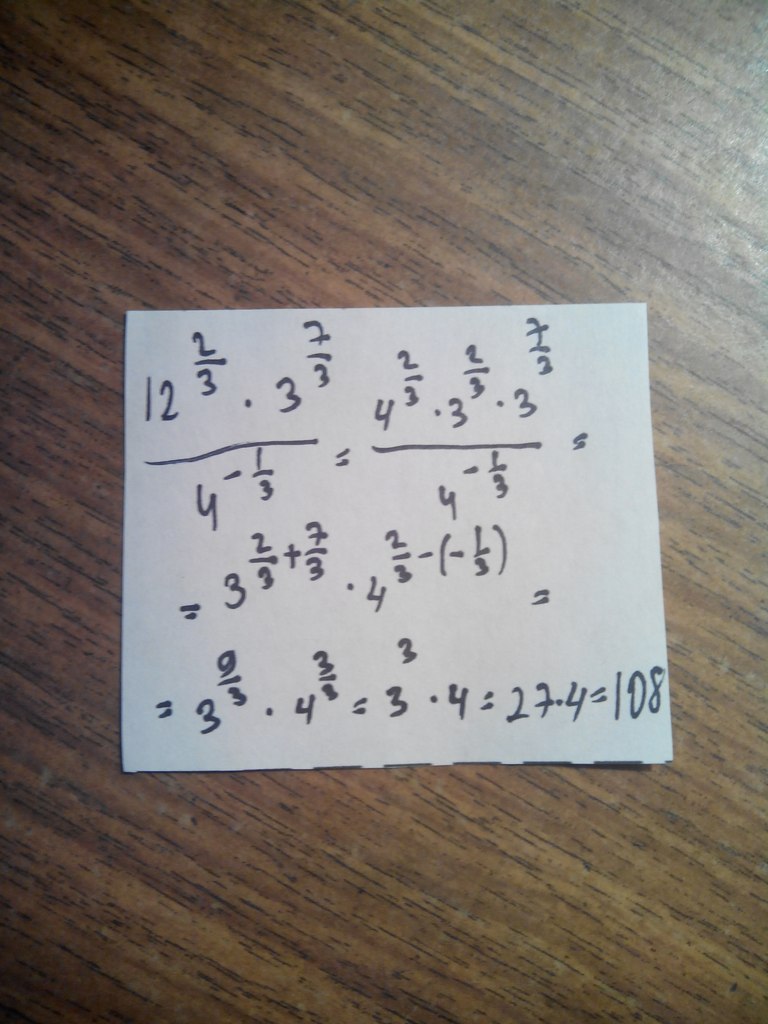 12^(2/3) · 3^(7/3) / 4^(-1/3) = 4^(2/3) · 3^(2/3) · 3^(7/3) / 4^(-1/3) =
= 3^(2/3+7/3) · 4^(2/3-(-1/3)) =
= 3^(9/3) · 4^(3/3) = 3^3 · 4 = 27·4=108